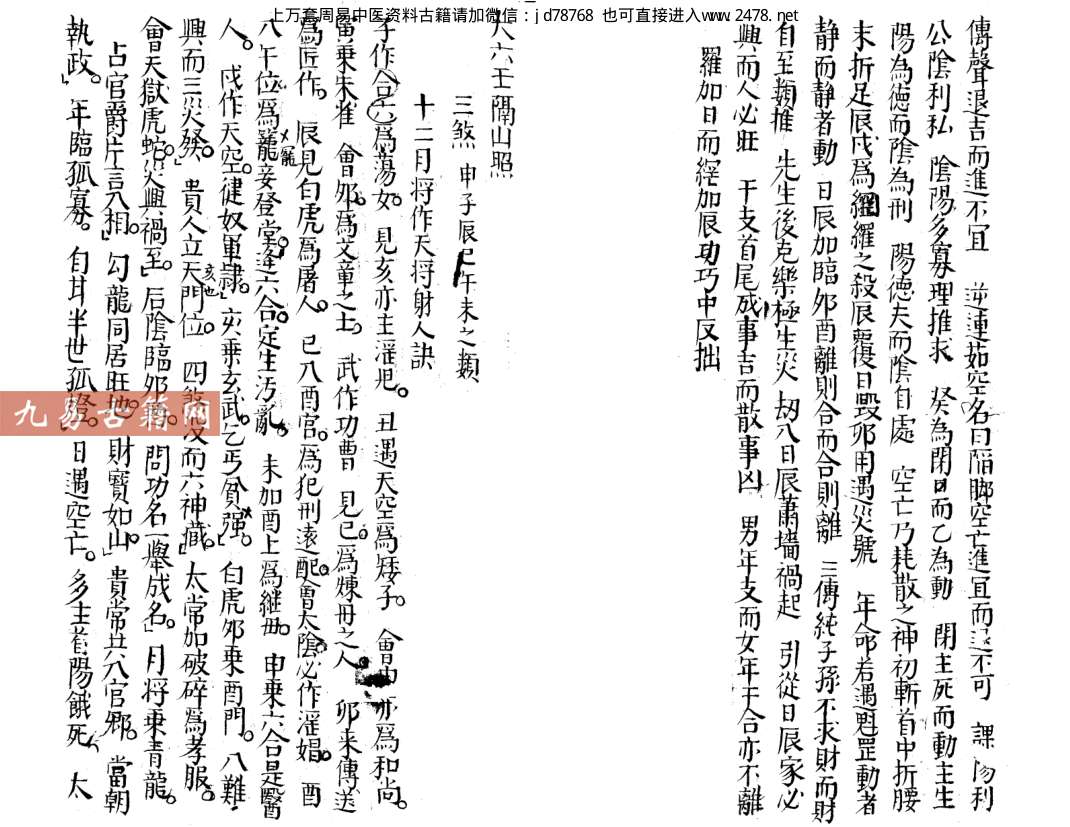 上万套周易中医资料古籍请加微信：jd78768 也可直接进入www.2478.net
傳聲退吉而進不宜 逆連茹空名曰陷腳空亡進宜而退不可 課陽利
公陰利私 陰陽多寡理推求 癸為閉日而乙為動 閉主死而動主生
陽為德而陰為刑 陽德夫而陰自處 空亡乃耗散之神初斬首中折腰
末折足辰戌爲網羅之殺辰覆日毀卯用遇災號 年命若遇魁罡動者
静而静者動 日辰加臨夘酉離則合而合則離 三傳純子孫不求財而財
自至類推 先生後克樂極生災 刼入日辰蕭墻禍起 引從日辰家必
興而人必旺 干支首尾成事吉而散事凶 男年支而女年干合亦不離
羅加日而網加辰功巧中反拙
大六壬隔山照
三煞 申子辰巳午未之類
十二月將作天将射人訣
子作合六為蕩女。見亥亦主淫児。丑遇天空爲矮子。會 亦爲和尚。
寅乗朱雀 會夘爲文章之士。武作功曹 見巳爲煉丹之人。卯来傳送
爲匠作。辰見白虎爲屠人。巳入酉官爲犯刑遠配會太陰必作淫娼。酉
八午位爲寵妾登堂逢六合定生汚亂。未加酉上爲継毋。申乗六合是醫
寵
人。戌作天空健奴軍隷。亥乗玄武乞丐貧强。白虎夘乗酉門。八難
興而三災發。貴人立天門位。四煞没而六神藏。太常加破碎爲孝服。
亥也
會天獄虎蛇災興禍至。后陰臨夘 問功名一舉成名。月将乗青龍
占官爵片言入相。勾龍同居旺地財寶如山。貴常共入官鄉。當朝
執政。年臨孤寡。自甘半世孤燈。日遇空亡。多主首陽餓死 太
九易古籍网